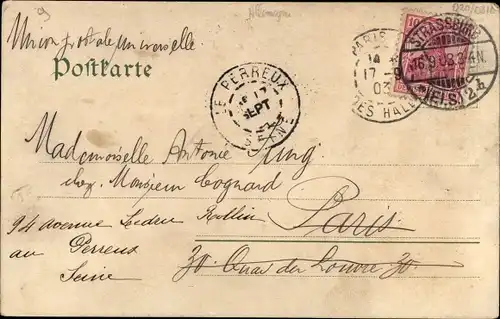 9
Allemagne
Union postale universelle
Postkarte
LE PERREUX
17
SEPT
SEINE
PARIS
17-9
03
DES HALLES
10
STRASSBURG
16.9.03.
(ELS.) 2 h
Mademoiselle Antonie Jung
chez Monsieur Cognard
94 avenue Ledru Rollin
Paris
au Perreux
30 Quai du Louvre 30.
Seine